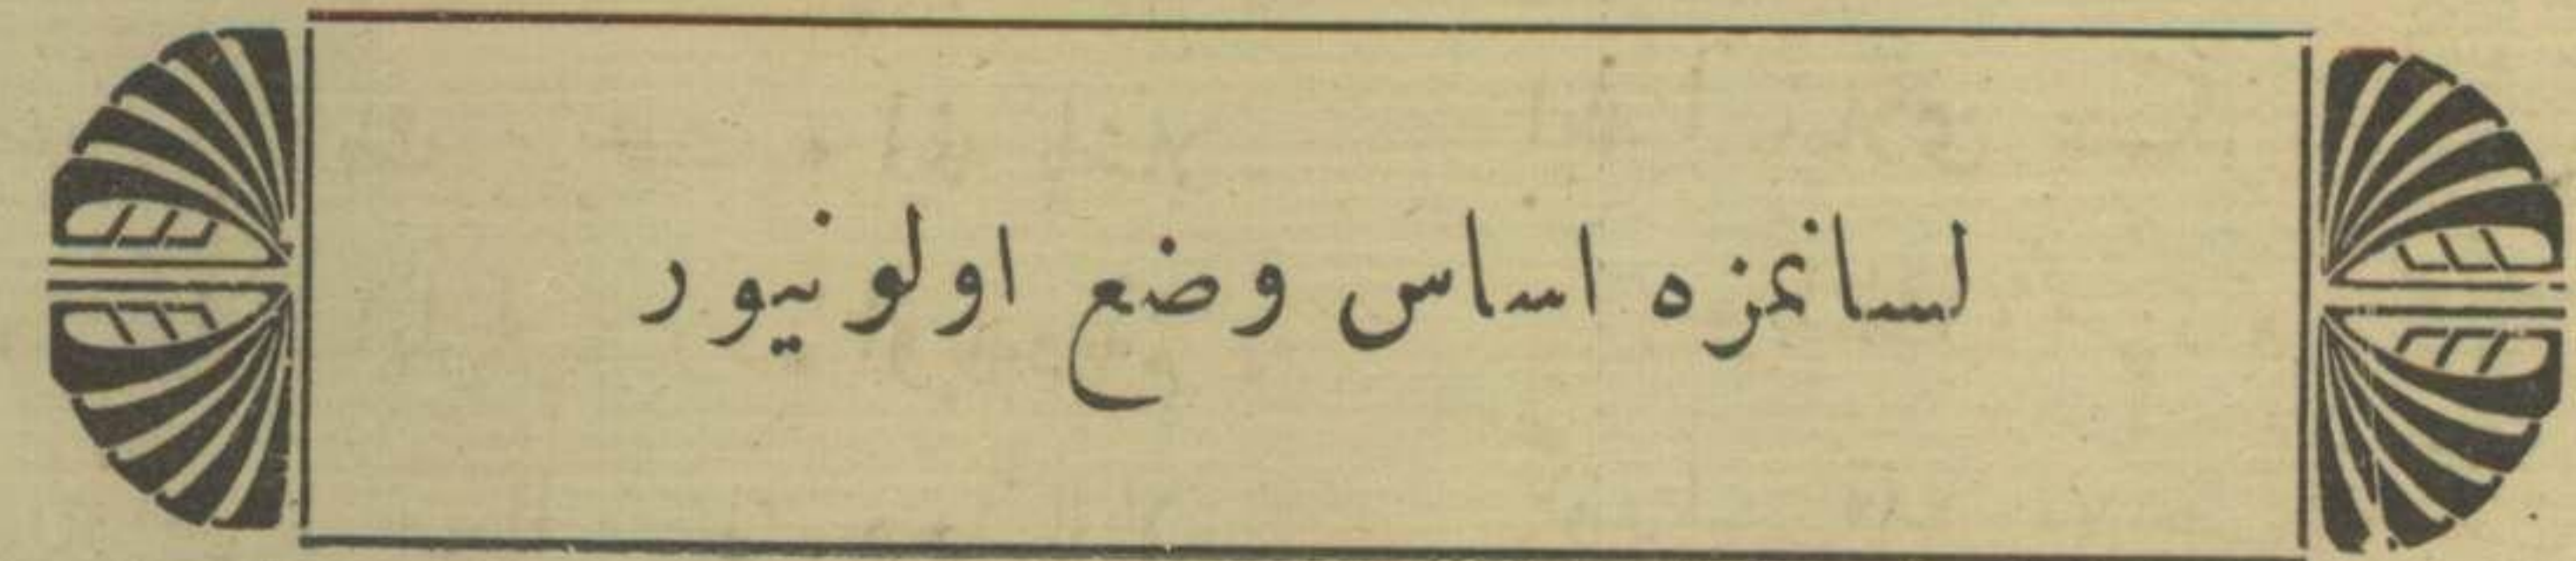 لسانمزه اساس وضع اولونیور